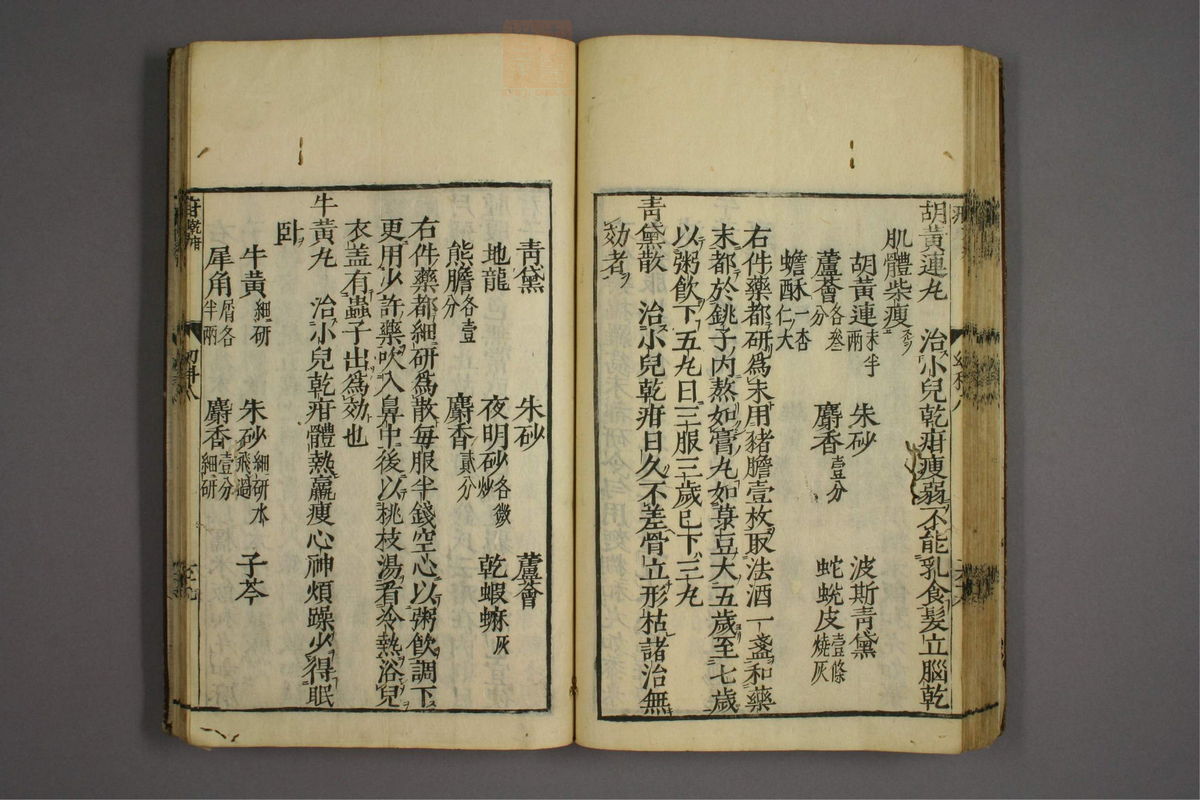 胡黃連丸　治小兒乾疳瘦弱不能乳食髮立腦乾
肌體柴瘦
胡黃連末半兩　朱砂　波斯青黛
蘆薈各叁分　麝香壹分　蛇蛻皮壹條燒灰
蟾酥一杏仁大
右件藥都研爲末用猪膽壹枚取法酒一盞和藥
末都於銚子內熬如膏丸如菉豆大五歲至七歲
以粥飲下五丸日三服三歲已下三丸
青黛散　治小兒乾疳日久不差骨立形枯諸治無
効者
青黛　朱砂　蘆薈
地龍　夜明砂各微炒　乾蝦蟆灰
熊膽各壹分　麝香貳分
右件藥都細研爲散每服半錢空心以粥飲調下
更用少許藥吹入鼻中後以桃枝湯看冷熱浴兒
衣盖有蟲子出爲効也
牛黃丸　治小兒乾疳體熱羸瘦心神煩躁少得眠
卧
牛黃細研　朱砂細研水飛過　子芩
犀角屑各半兩　麝香壹分細研